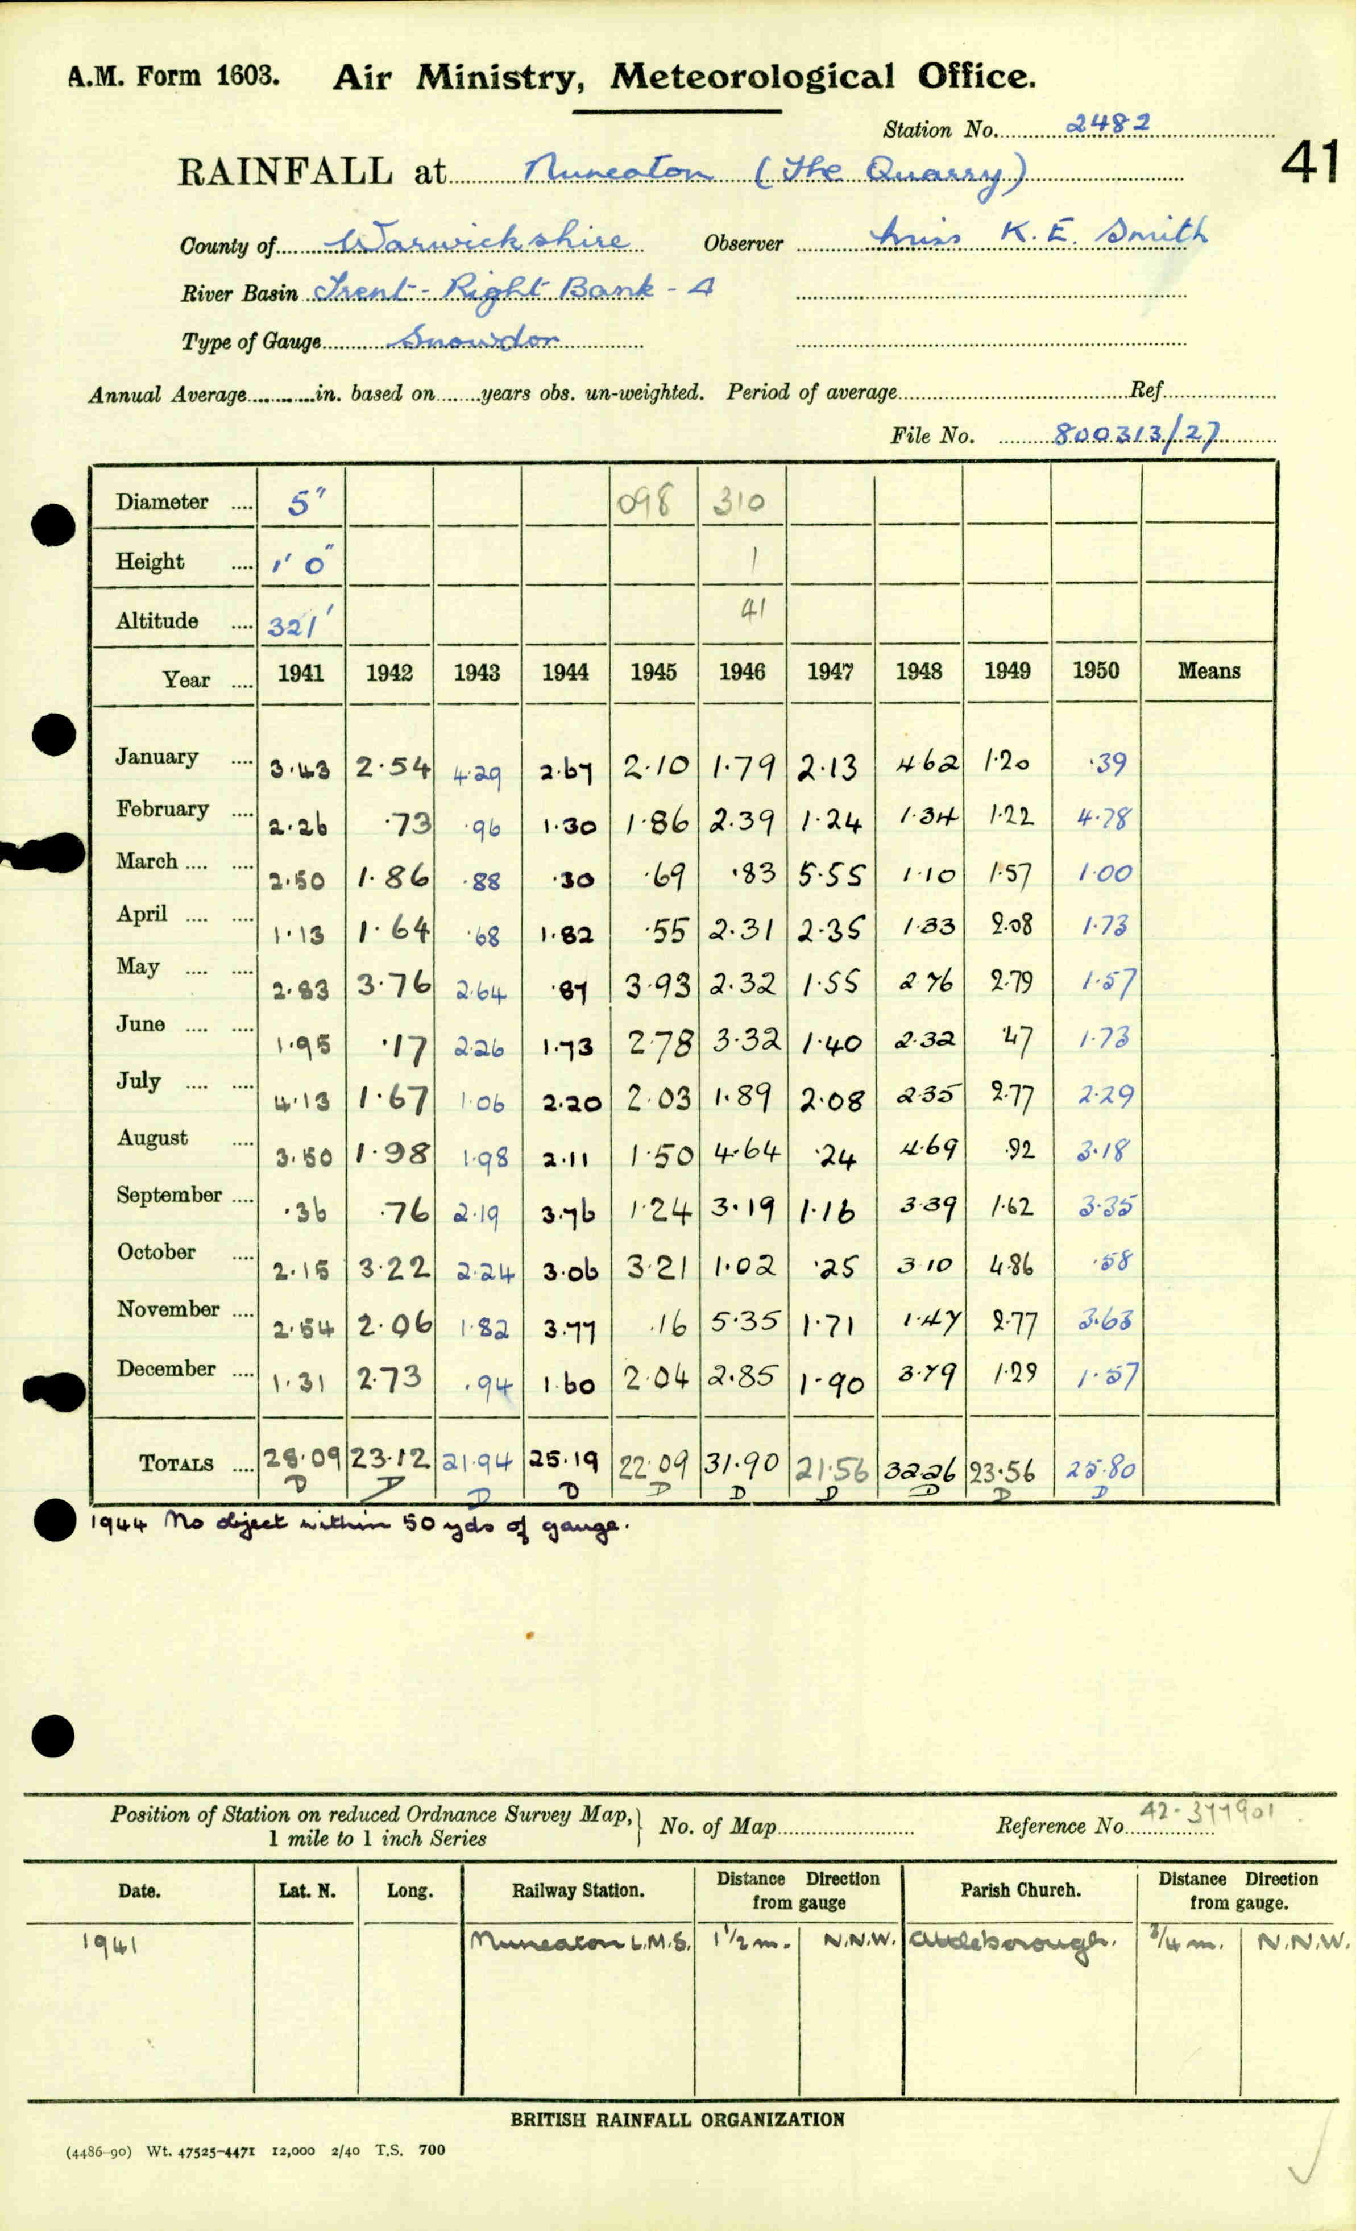 A.M. Form 1603. Air Ministry, Meteorological Office.
Station No. 2482
41
RAINFALL at Nuneaton (The Quarry)
County of Warwickshire Observer Miss K. E. Smith
River Basin Trent - Right Bank - 4
Type of Gauge Snowdon
Annual Average............in. based on.......years obs. un-weighted. Period of average............Ref............
File No. 800313/27
Diameter .... 5" 098 310
Height .... 1' 0" 1
Altitude .... 321' 41
Year .... 1941 1942 1943 1944 1945 1946 1947 1948 1949 1950 Means
January .... 3·43 2·54 4·29 2·67 2·10 1·79 2·13 4 62 1·20 ·39
February .... 2·26 ·73 ·96 1·30 1·86 2·39 1·24 1·34 1·22 4·78
March .... .... 2·50 1·86 ·88 ·30 ·69 ·83 5·55 1·10 1·57 1·00
April .... .... 1·13 1·64 ·68 1·82 ·55 2·31 2·35 1·33 2·08 1·73
May .... .... 2·83 3·76 2·64 ·87 3·93 2·32 1·55 2 76 2·79 1·57
June .... .... 1·95 ·17 2·26 1·73 2·78 3·32 1·40 2·32 ·47 1·73
July .... .... 4·13 1·67 1·06 2·20 2·03 1·89 2·08 2·35 2·77 2·29
August .... 3·50 1·98 1·98 2·11 1·50 4·64 ·24 4·69 ·92 3·18
September .... ·36 ·76 2·19 3·76 1·24 3·19 1·16 3·39 1·62 3·35
October .... 2·15 3·22 2·24 3·06 3·21 1·02 ·25 3 10 4·86 ·58
November .... 2·54 2·06 1·82 3·77 ·16 5·35 1·71 1·47 2·77 3·63
December .... 1·31 2·73 ·94 1·60 2·04 2·85 1·90 3·79 1·29 1·57
TOTALS .... 28·09 23·12 21·94 25·19 22·09 31·90 21·56 32·26 23·56 25·80
D D D D D D D D D D
1944 No object within 50 yds of gauge.
Position of Station on reduced Ordnance Survey Map, 1 mile to 1 inch Series } No. of Map............ Reference No. 42·377901
Date. Lat. N. Long. Railway Station. Distance Direction from gauge Parish Church. Distance Direction from gauge.
1941 Nuneaton L.M.S. 1½ m. N.N.W. Attleborough. ¾ m. N.N.W.
BRITISH RAINFALL ORGANIZATION
(4486-90) Wt. 47525-4471 12,000 2/40 T.S. 700